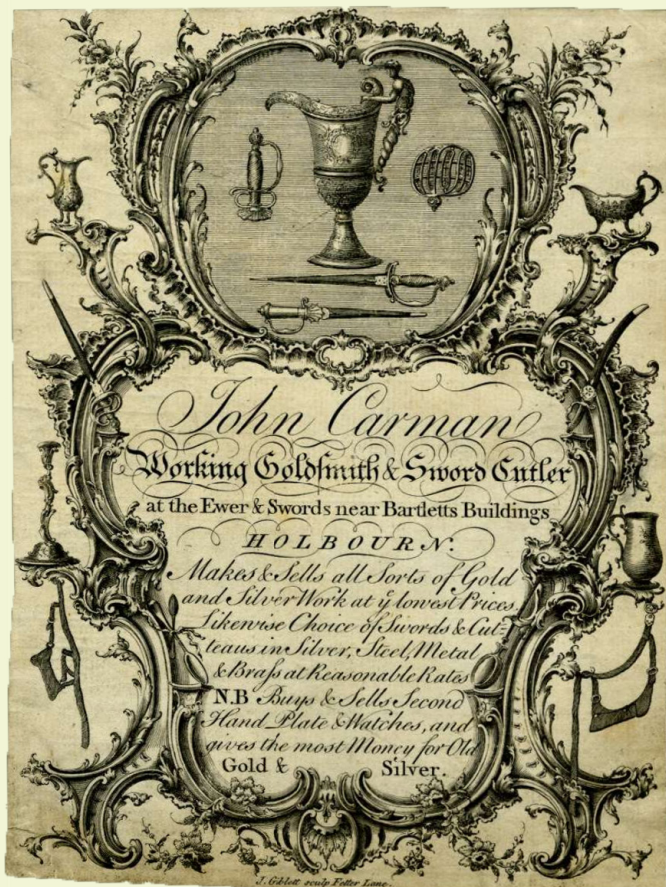 John Carman
Working Goldsmith & Sword Cutler
at the Ewer & Swords near Bartletts Buildings
HOLBOURN.
Makes & Sells all Sorts of Gold
and Silver Work at yͤ lowest Prices.
Likewise Choice of Swords & Cut=
teaus in Silver, Steel, Metal
& Braſs at Reasonable Rates
N.B Buys & Sells Second
Hand Plate & Watches, and
gives the most Money for Old
Gold & Silver.
J. Giblett sculp Fetter Lane.